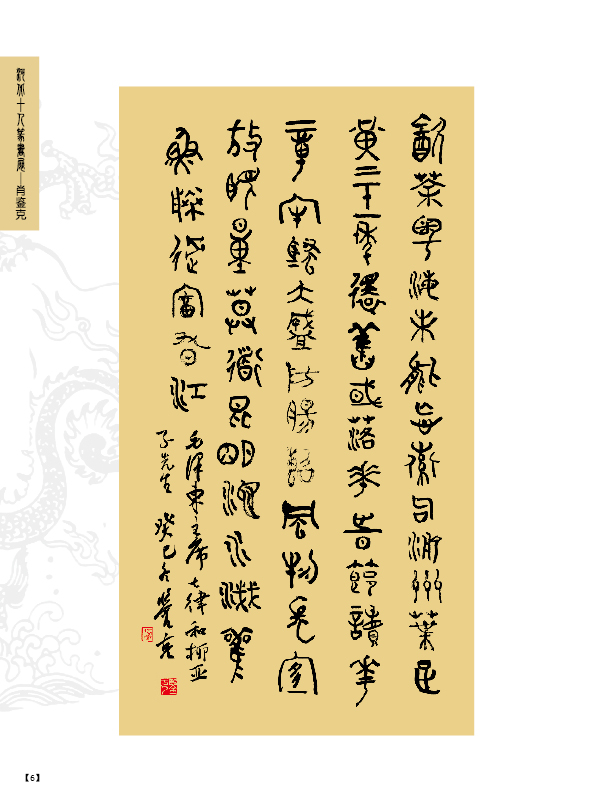 十人篆書展—肖鉴克
飲茶粵海未能忘索句渝州葉正
黃三十一年還舊國落花時節讀華
章牢騷太盛防腸斷風物長宜
放眼量莫道昆明池水淺觀
魚勝過富春江
毛澤東主席七律和柳亞
子先生 癸巳冬鑒克
【6】